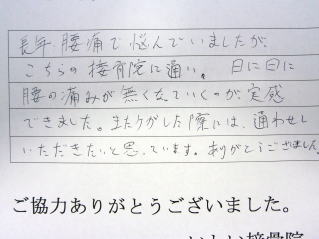 長年、腰痛で悩んでいましたが、
こちらの接骨院に通い、日に日に
腰の痛みが無くなっていくのが実感
できました。またケガした際には、通わせて
いただきたいと思っています。ありがとうございました。
ご協力ありがとうございました。
接骨院